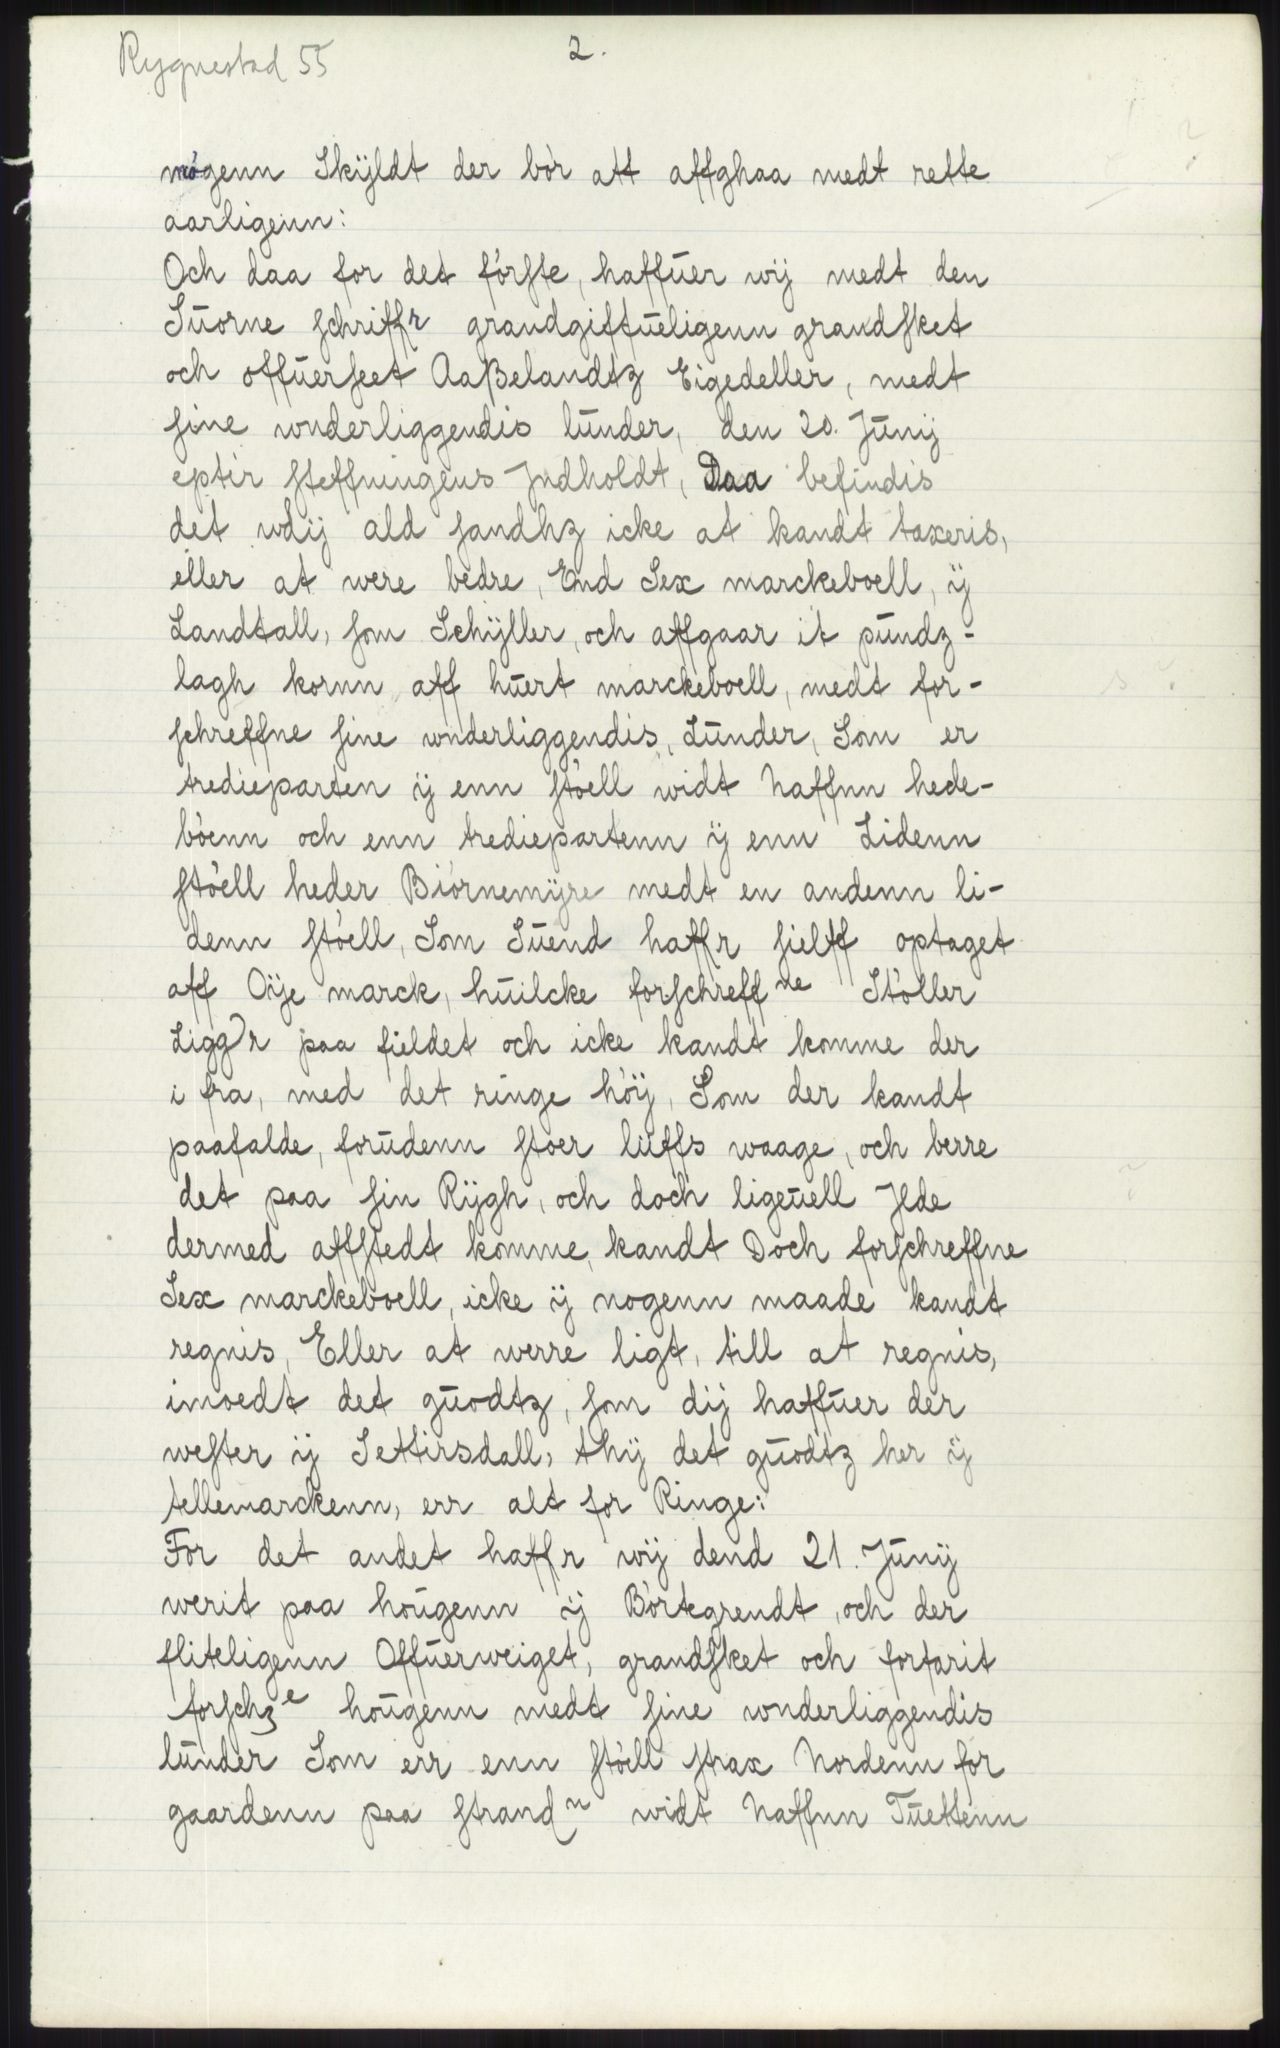 Rygnestad 55
2.
mógenn Skÿldt der bór att affghaa medt rette
aarligenn:
Och daa for det fórste, haffŭer wÿ medt den
Sŭorne schriffr grandgiftŭeligenn grandsket
och offŭerseet Aaßelandtz Eigedeller, medt
sine wnderliggendis lŭnder, den 20. Jŭnij
eptir steffningens Jndholdt, Daa befindis
det wdij ald sandhz icke at kandt taxeris,
eller at were bedre, End Sex marckeboell, ÿ
Landtall, som Schÿller, och affgaar it pŭndz-
lagh kornn aff hŭert marckeboell, medt for-
schreffne sine wnderliggendis, Lŭnder, Som er
tredieparten ÿ enn stóell widt Naffnn hede-
bóenn och enn trediepartenn ÿ enn Lidenn
stóell heder Biórnemÿre medt en andenn li-
denn stóell, Som Sŭend haffr sielff optaget
aff Oÿe marck, hŭilcke forschreffne Stóller
Liggr paa fieldet och icke kandt komme der
i fra, med det ringe hóÿ, Som der kandt
paafalde, forŭdenn stoer lŭffs waage, och berre
det paa sin Rÿgh, och doch ligeŭell Jlde
dermed affstedt komme, kandt Doch forschreffne
Sex marckeboell, icke ÿ nogenn maade kandt
regnis, Eller at werre ligt, till at regnis,
imoedt det gŭodtz, som dij haffŭer der
wester ÿ Settirsdall, thÿ det gŭodtz her ÿ
tellemarckenn, err alt for Ringe:
For det andet haffr wÿ dend 21. Jŭnij
werit paa hoŭgenn ÿ Bórtegrendt, och der
fliteligenn Offŭerweiget, grandsket och forfarit
forschze hoŭgenn medt sine wnderliggendis
lŭnder Som err enn stóell strax Nordenn for
gaardenn paa strandn widt Naffnn Tŭettenn